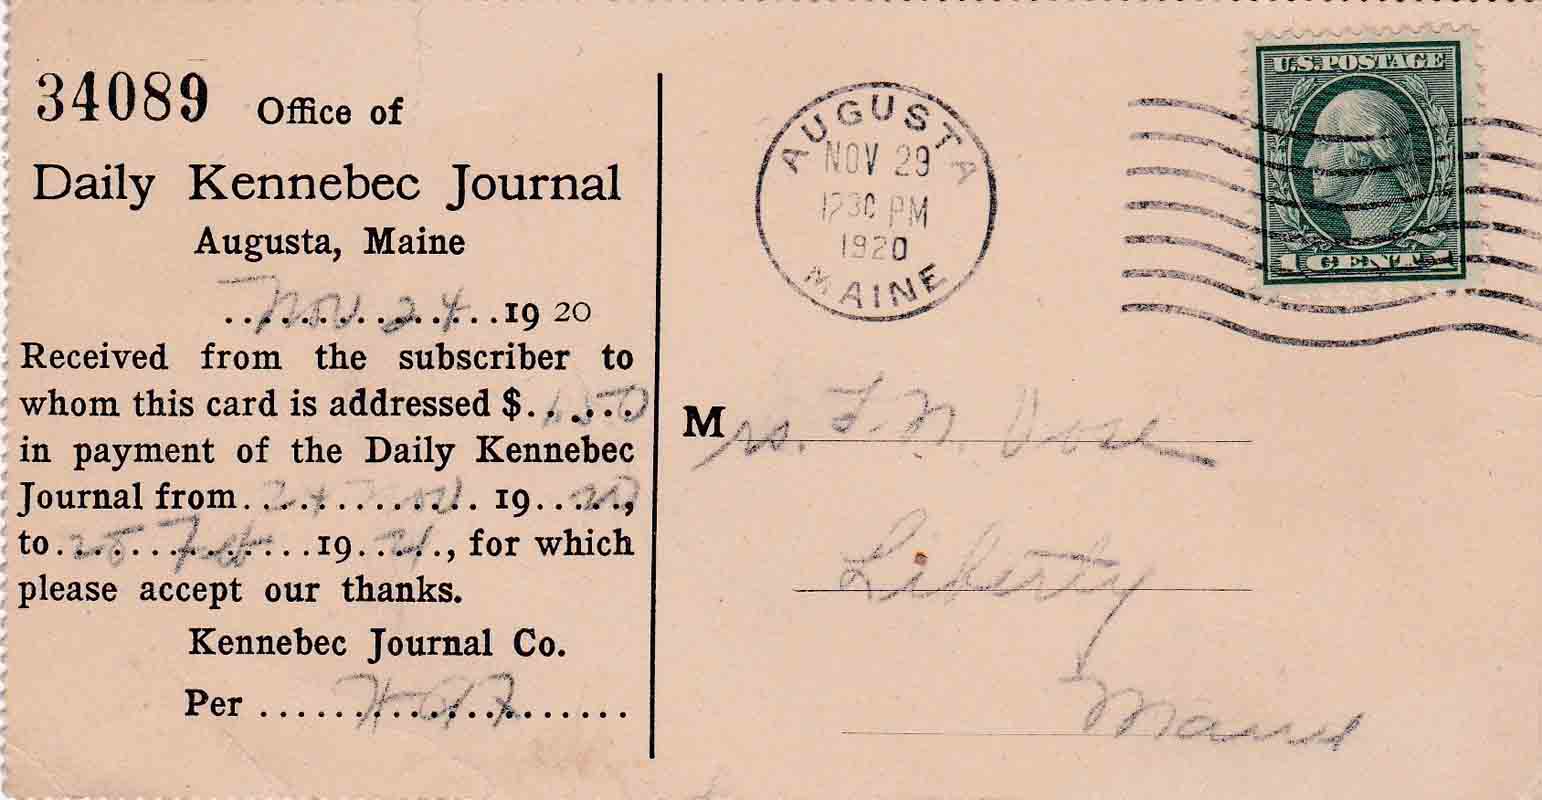 34089 Office of
Daily Kennebec Journal
Augusta, Maine
Nov 24 1920
Received from the subscriber to
whom this card is addressed $
in payment of the Daily Kennebec
Journal from 24 Nov 1920,
to 25 Feb 1921, for which
please accept our thanks.
Kennebec Journal Co.
Per
AUGUSTA
NOV 29
1230 PM
1920
MAINE
U.S. POSTAGE
1 CENT 1
Mrs. F. N. Vose
Liberty
Maine